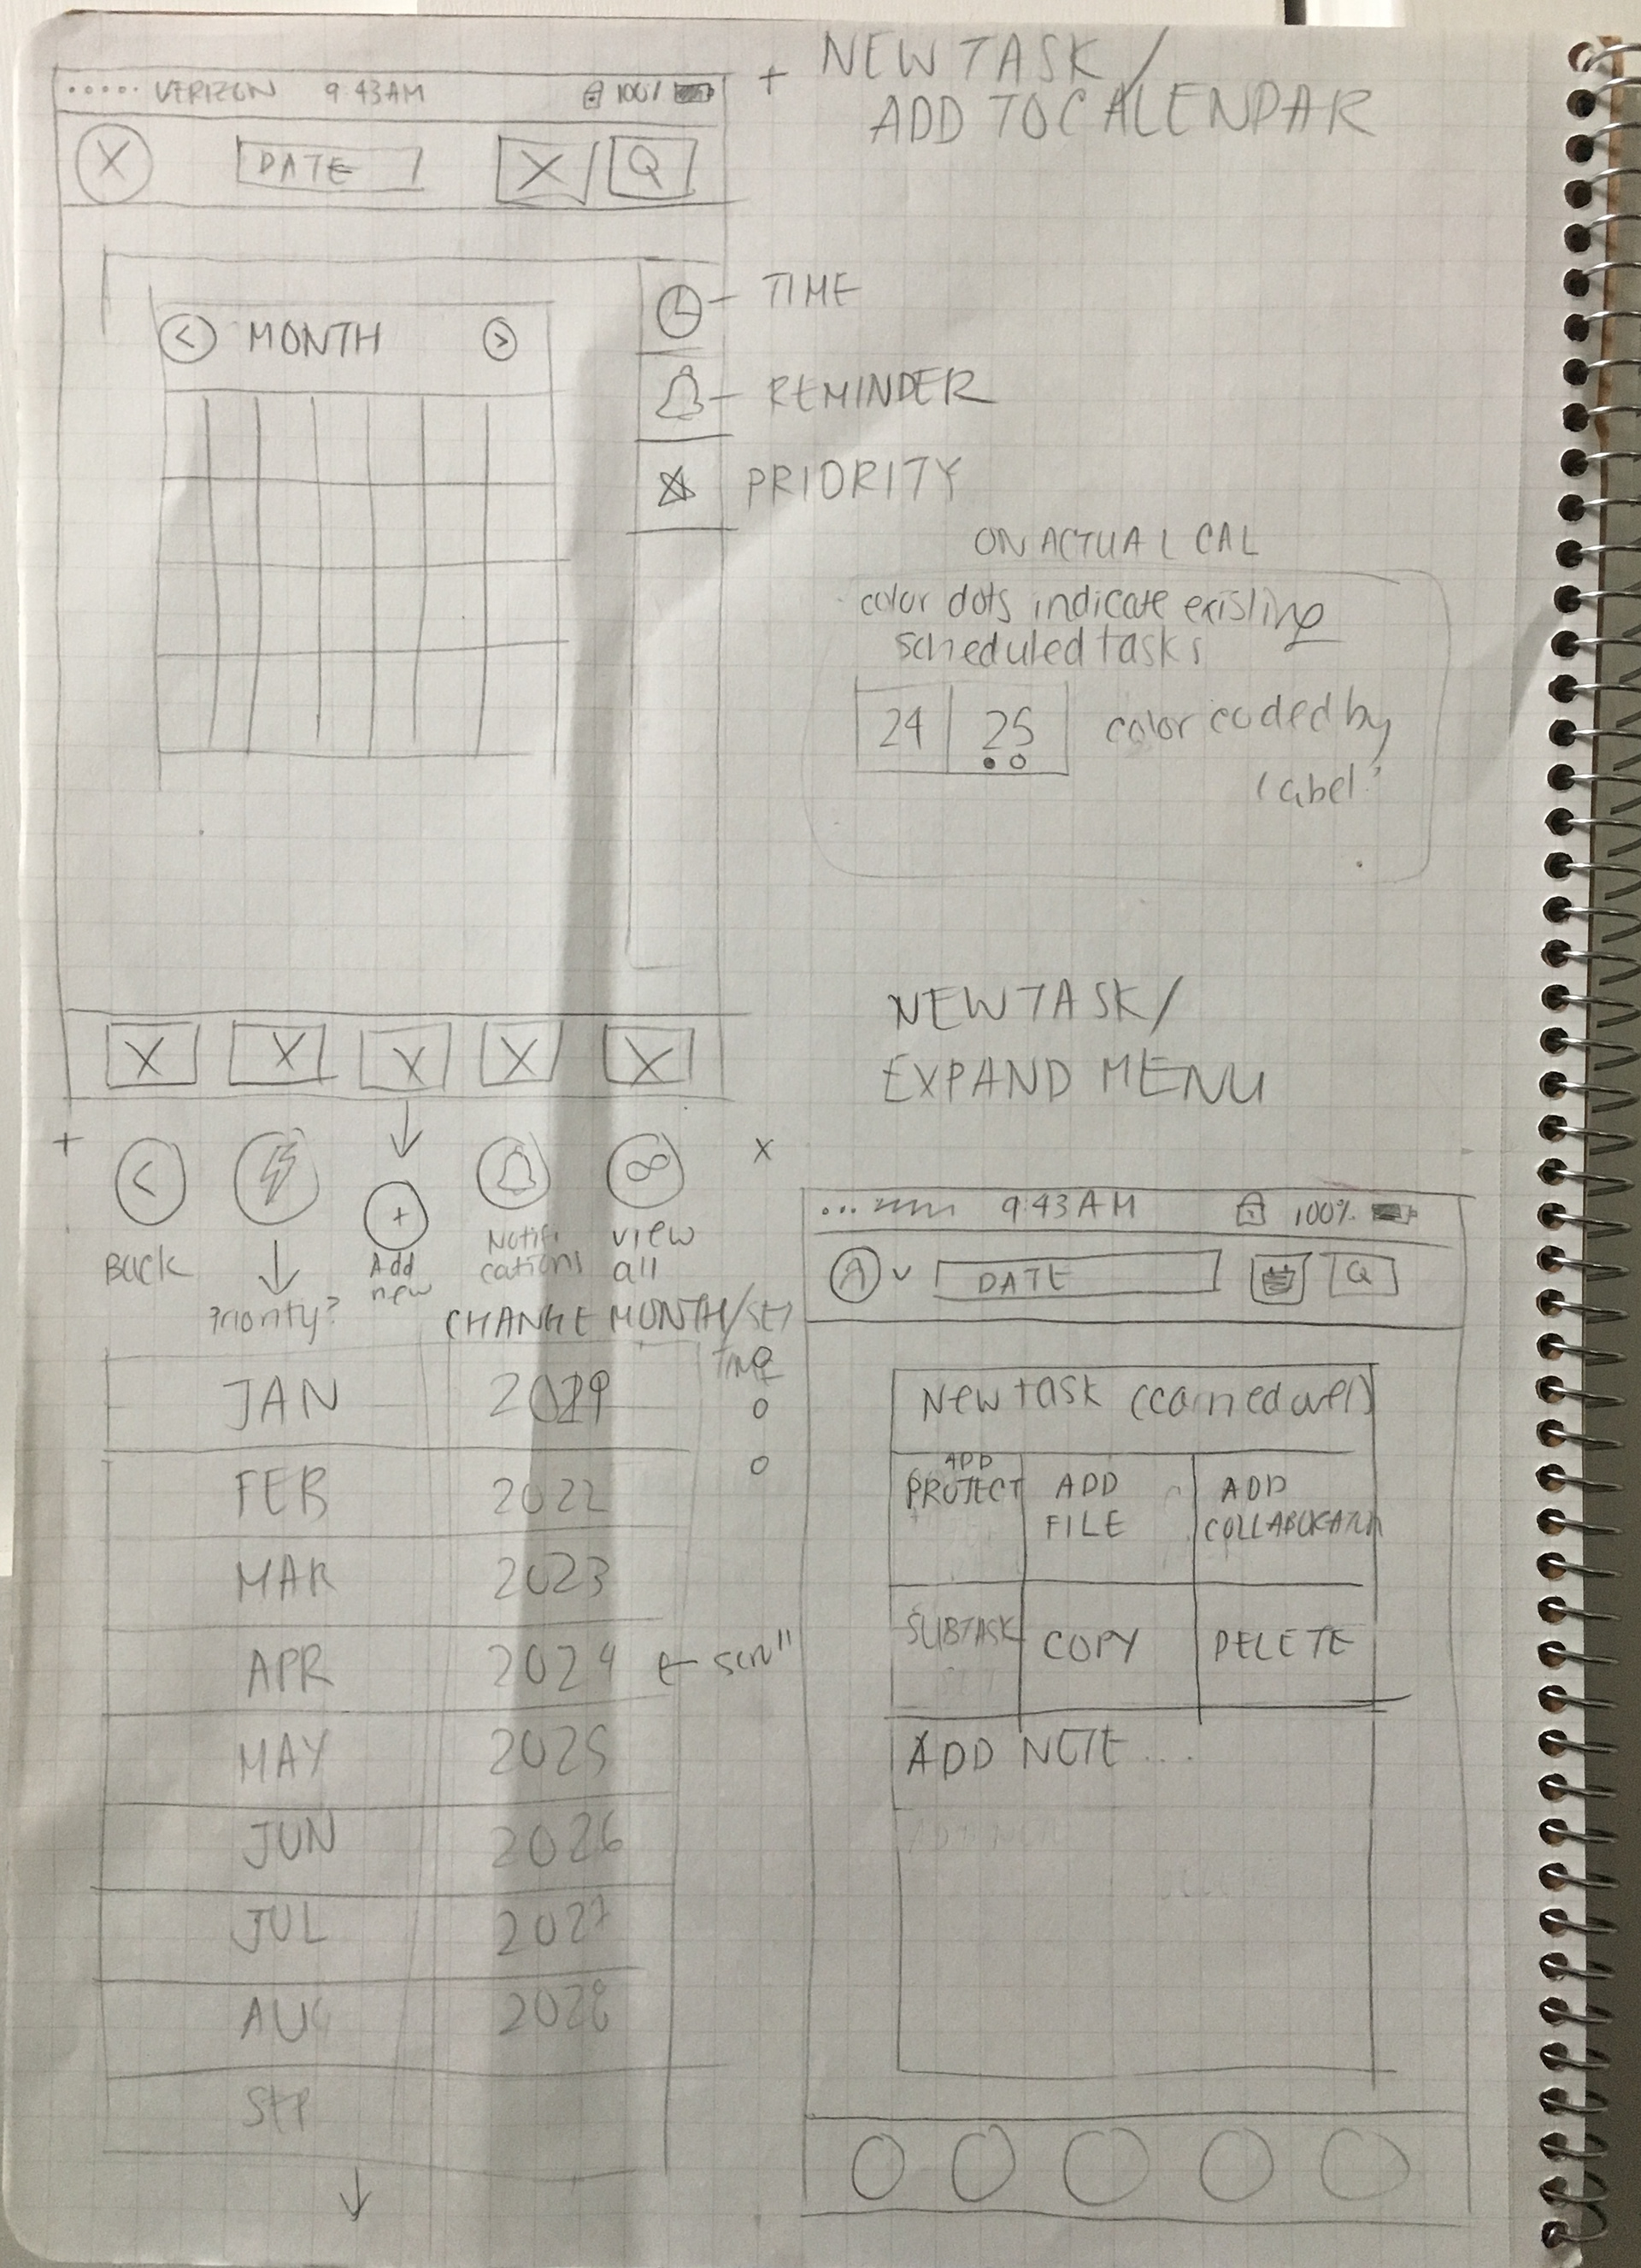 + NEW TASK /
ADD TO CALENDAR
VERIZON 9:43AM 100%
X DATE X Q
< MONTH >
TIME
REMINDER
PRIORITY
ON ACTUAL CAL
color dots indicate existing
scheduled tasks
24 25
color coded by
label
X X X X X
+ < + x
Back
Priority?
Add
new
Notifi
cations
view
all
CHANGE MONTH/SET
TIME
JAN
FEB 2022
MAR 2023
APR 2024 ← scroll
MAY 2025
JUN 2026
JUL 2027
AUG 2028
SEP
NEW TASK/
EXPAND MENU
9:43AM 100%
A DATE Q
New task (carried over)
ADD
PROJECT
ADD
FILE
ADD
COLLABORATOR
SUBTASK
COPY
DELETE
ADD NOTE...